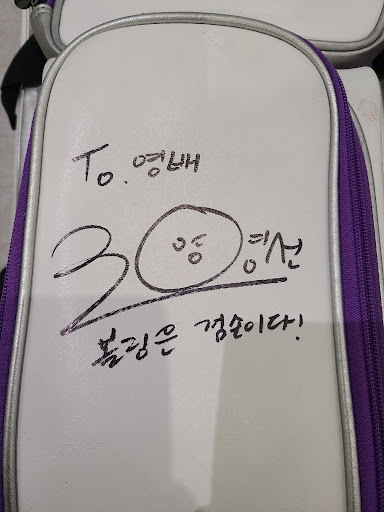 To. 영배
30 양 영선
볼링은 겸손이다!